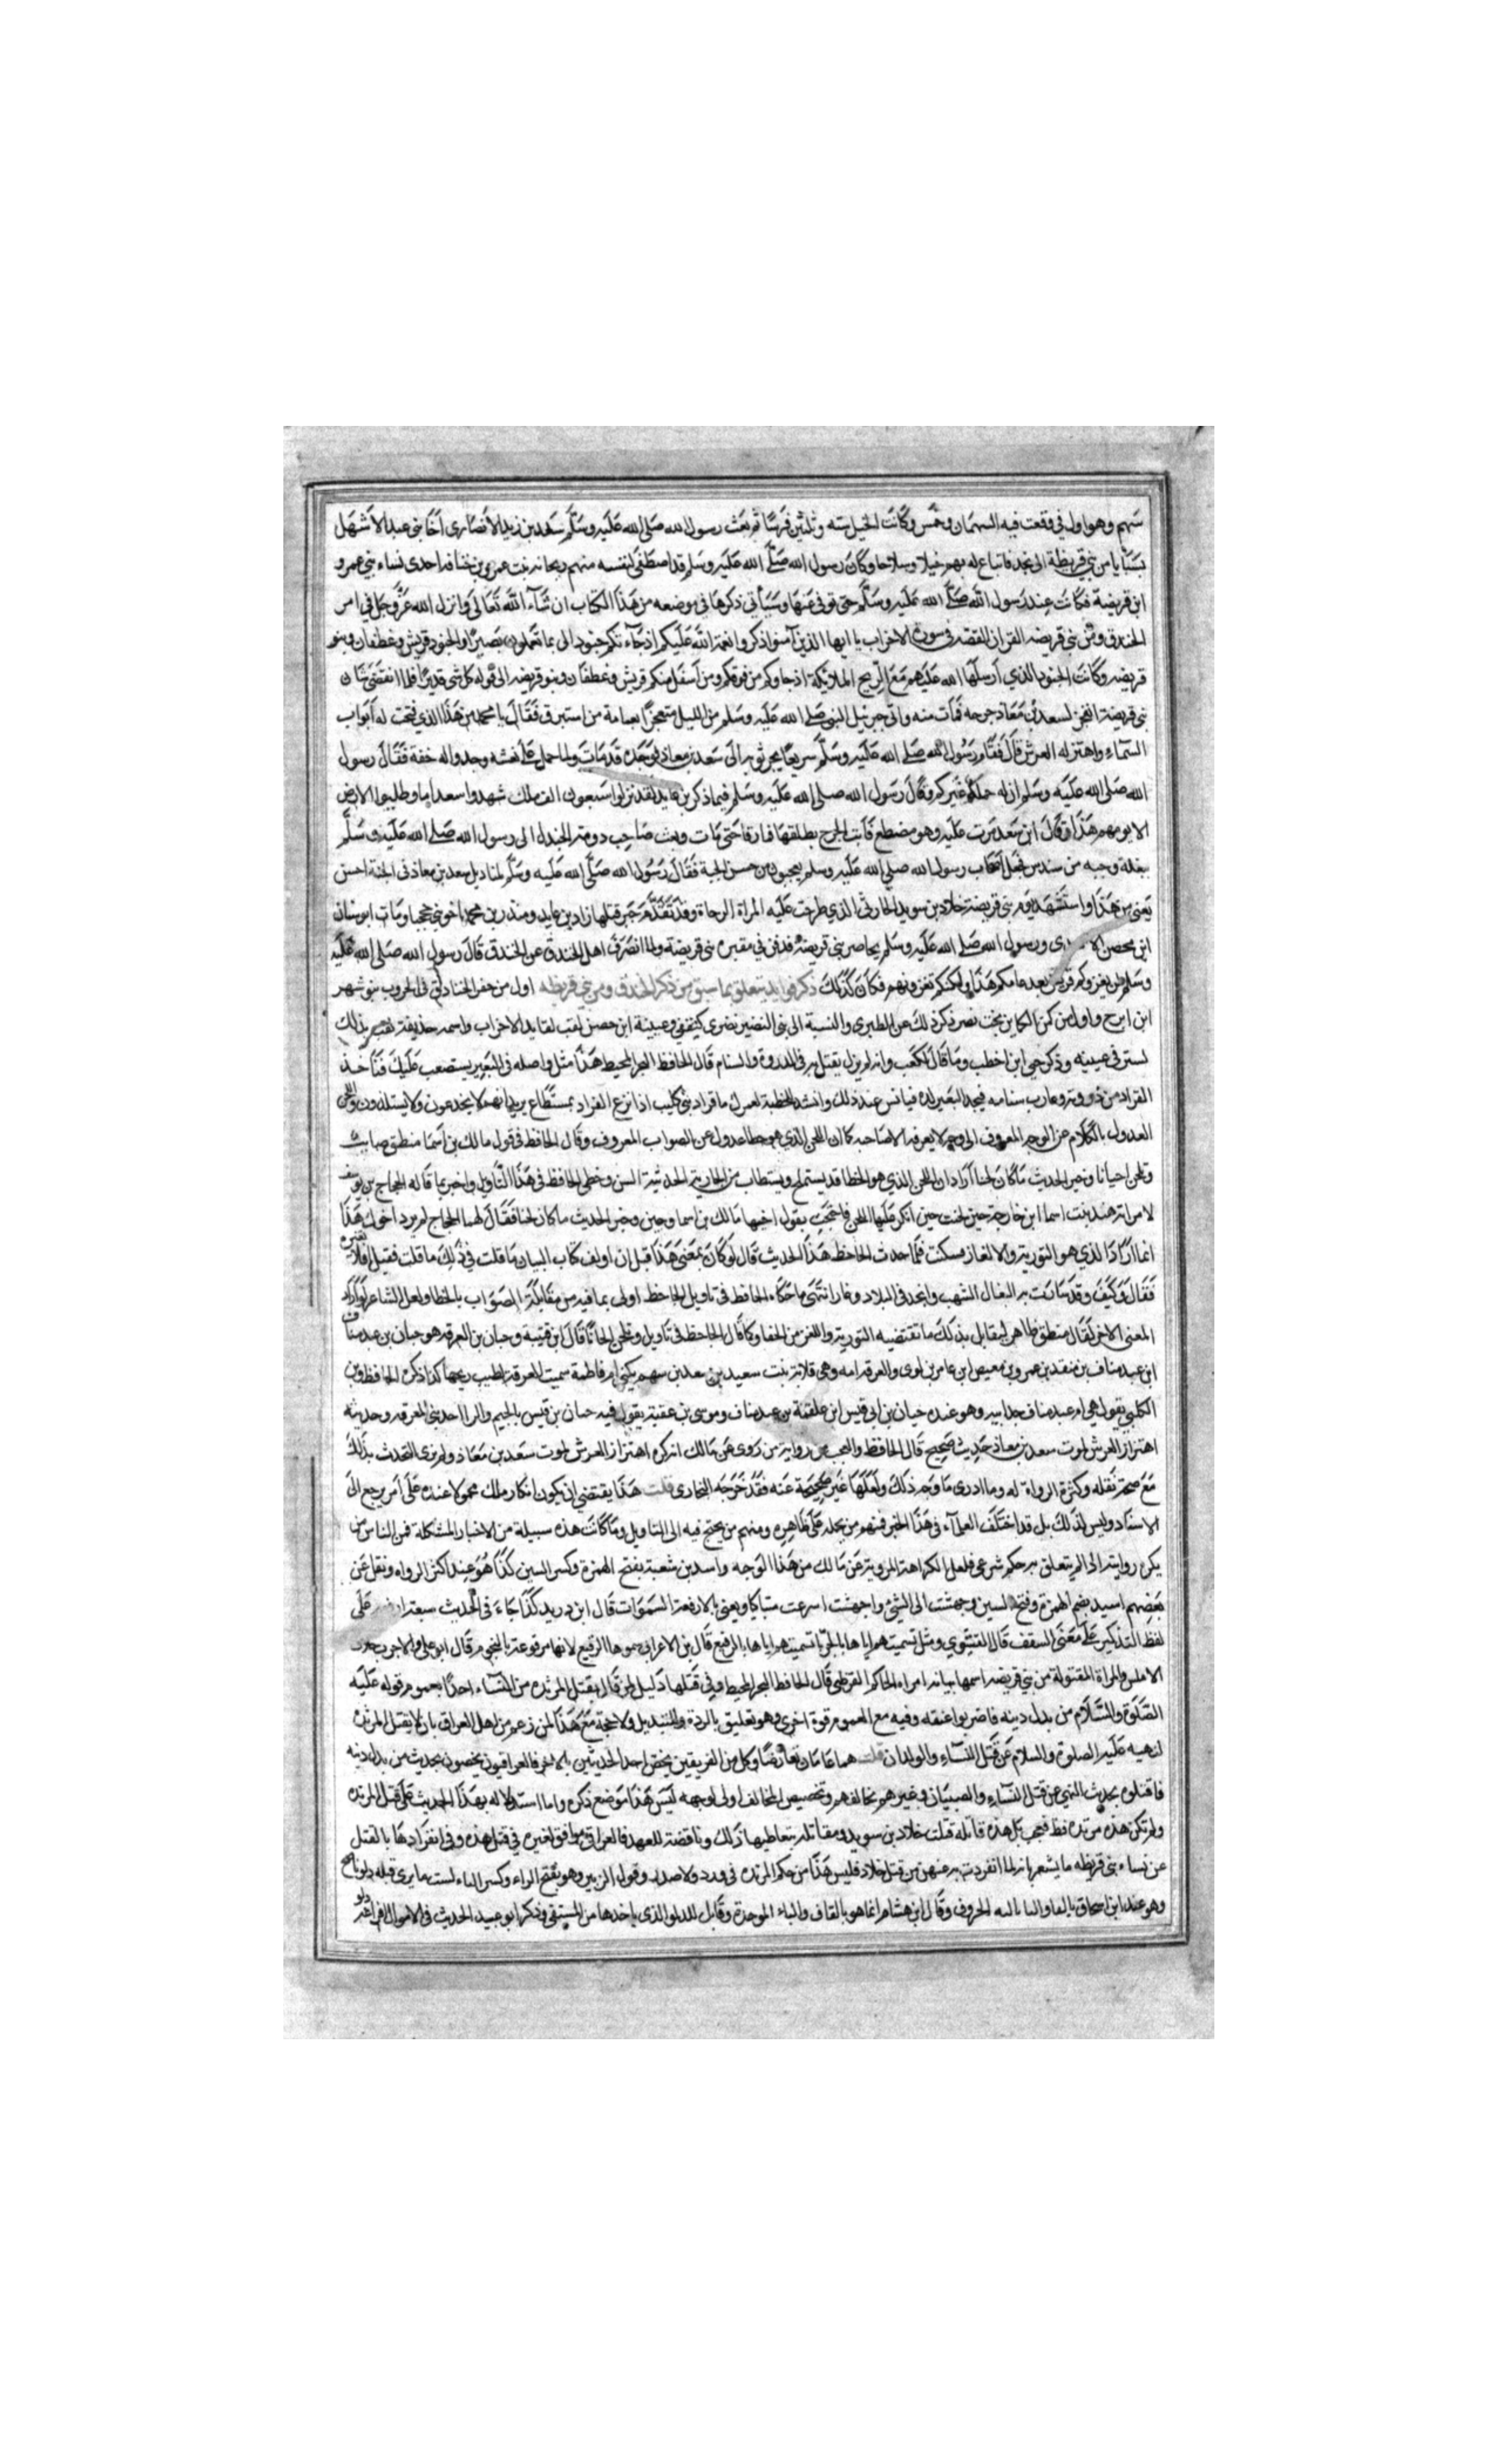 سهم وهو اول فيء وقعت فيه السهمان وخمس وكانت الخيل سته وثلثين فرسا ثم بعث رسول الله صلى الله عليه وسلم سعد بن زيد الانصارى اخا بنى عبد الاشهل
بسبايا من بني قريظة الى نجد فابتاع له بهم خيلا وسلاحا وكان رسول الله صلى الله عليه وسلم قد اصطفى لنفسه منهم ريحانه بنت عمرو بن خنافه احدى نساء بني عمرو
ابن قريضة فكانت عند رسول الله صلى الله عليه وسلم حتى توفى عنها وسيأتي ذكرها في موضعه من هذا الكتاب ان شآء الله تعالى وانزل الله عز وجل في امر
الخندق وبنى قريضه القران القصة في سورة الاحزاب يا ايها الذين آمنوا اذكروا نعمة الله عليكم اذ جآءتكم جنود الى بما تعملون بصيرا والجنود قريش وغطفان وبنو
قريضه وكانت الجنود الذي ارسلها الله عليهم مع الريح الملائكة اذ جاوكم من فوقكم ومن اسفل منكم قريش وغطفان وبنو قريضه الى قوله كل شى قديرا فلما انقضى شان
بنى قريضة انفجر لسعد بن معاذ جرحه فمات منه واتى جبرئيل النبي صلى الله عليه وسلم من الليل معتجرا بعمامة من استبرق فقال يا محمد من هذا الذي فتحت له ابواب
السمآء واهتز له العرش قال فقام رسول الله صلى الله عليه وسلم سريعا يجر ثوبه الى سعد بن معاذ فوجده قد مات ولما حمل على نعشه وجدوا له خفة فقال رسول
الله صلى الله عليه وسلم ان له حملة غيركم وقال رسول الله صلى الله عليه وسلم فيما ذكر بن عايد لقد نزل سبعون الف ملك شهدوا سعدا ما وطيوا الارض
الا يومهم هذا وقال ابن سعد مرت عليه وهو مضطجع فاتت الجرح بظلفها فما رقا حتى مات وبعث صاحب دومة الجندل الى رسول الله صلى الله عليه وسلم
ببغلة وجبه من سندس فجعل اصحاب رسول الله صلى الله عليه وسلم يعجبون من حسن الجبة فقال رسول الله صلى الله عليه وسلم لمناديل سعد بن معاذ في الجنة احسن
يعنى من هذا واستشهد يوم بنى قريضة خلاد بن سويد الحارثى الذي طرحت عليه المراة الرحاة وقد تقدم خبر قتلها زاد بن عايد ومنذر بن محمد اخو بني جحجبا ومات ابو سنان
ابن محصن ورسول الله صلى الله عليه وسلم يحاصر بنى قريضه فدفن في مقبره بنى قريضة ولما انصرف اهل الخندق عن الخندق قال رسول الله صلى الله عليه
وسلم لن يغزوكم قريش بعد عامكم هذا ولكنكم تغزونهم فكان كذلك ذكر فوايد يتعلق بما سبق من ذكر الخندق ومن بني قريظه اول من حفر الخنادق في الحروب منوشهر
ابن ايرج واول من كمن الكماين بخت نصر ذكر ذلك عن الطبرى والنسبة الى بنى النضير نضرى كثقفى وعيينة ابن حصن لقب لقايد الاحزاب واسمه حذيفة لقب بذلك
لستر في عيينه وذكر حيى ابن اخطب وما قال لكعب وانه لم يزل يقتل به في الذروة والسنام قال الحافظ البحر المحيط هذا مثل واصله في البعير يستصعب عليك فتاخذ
القراد من ذروته وغارب سنامه فيجد البعير لذه فيانس عند ذلك وانشد للحطية لعمرك ما قراد بنى كليب اذا نزع القراد بمستطاع يريد انهم لا يخدعون ولا يستلذون واللحن
العدول بالكلام عن الوجه المعروف الى وجه لا يعرفه الا صاحبه كما ان اللحن الذي هو خطا عدول عن الصواب المعروف وقال الحافظ في قول مالك بن اسما منطق صايب
وتلحن احيانا وخير الحديث ما كان لحنا اراد ان اللحن الذي هو الخطا قد يستملح ويستطاب من الجارية الحديثة السن وخطى الحافظ في هذا التاويل واخبر بما قاله الحجاج بن يوسف
لامراته هند بنت اسما ابن خارجة حين لحنت حين انكر عليها اللحن فاحتجت بقول اخيها مالك بن اسما وحين وخير الحديث ما كان لحنا فقال لها الحجاج لم يرد اخوك هذا
انما اراد الذي هو التورية والالغاز فسكتت فلما حدث الجاحظ هذا الحديث قال لو كان بمعنى هذا قبل ان اولف كتاب البيان ما قلت في ذلك ما قلت فقيل افلا تغيره
فقال وكيف وقد سارت به البغال الشهب وانجد في البلاد وغار انتهى ما حكاه الحافظ في تاويل الجاحظ اولى بما فيه من مقابلة الصواب بالخطا ولعل الشاعر لو اراد
المعنى الاخر لقال منطق ظاهر ليقابل بذلك ما تقتضيه التورية واللغز من الخفا وكما قال الجاحظ في تاويل وتلحن احيانا قال ابن قتيبة وحبان بن العرقه هو حبان بن عبد مناف
ابن عبد مناف بن منقد بن عمرو بن معيص ابن عامر بن لوى والعرقه امه وهى قلابة بنت سعيد بن سعد بن سهم يكنى ام فاطمة سميت العرقة لطيب ريحها كذا ذكره الحافظ وابن
الكلبي يقول هي ام عبد مناف جد ابيه وهو عنده حبان بن ابى قيس ابن علقمة بن عبد مناف وموسى بن عقبة يقول فيه حبان بن قيس بالجيم والرا احد بنى العرقه وحديثه
اهتزاز العرش لموت سعد بن معاذ حديث صحيح قال الحافظ والعجب من رواية من روى عن مالك انه كره اهتزاز العرش لموت سعد بن معاذ ولم يرى التحدث بذلك
مع صحة نقله وكثرة الرواة له وما ادرى ما وجه ذلك ولعلها غير صحيحة عنه فقد خرجه البخارى قلت هذا يقتضى ان يكون انكار مالك محمولا عنده على امر يرجع الى
الاسناد وليس كذلك بل قد اختلف العلمآء في هذا الخبر فمنهم من يحمله على ظاهره ومنهم من يجنح فيه الى التاويل وما كانت هذه سبيله من الاخبار المشكلة فمن الناس من
يكره روايته اذا لم يتعلق به حكم شرعى فلعل الكراهة المروية عن مالك من هذا الوجه واسد بن شعبة بفتح الهمزة وكسر السين كذا هو عند اكثر الرواه ونقل عن
بعضهم اسيد بضم الهمزة وفتح السين وجهشت الى الشئ واجهشت اسرعت متباكيا ويعنى بالارقعة السموات قال ابن دريد كذا جاء في الحديث سبعة ارقعه على
لفظ التذكير على معنى السقف قال القتيبوي ومثل تسميتهم اياها بالجربا تسميتهم اياها بالرقيع قال بن الاعرابى سموها الرقيع لانها مرقوعة بالنجوم قال ابو على ولا جرب
الاملس والمراة المقتولة من بني قريضه اسمها بنانه امراه الحاكم القرظى قال الحافظ البحر المحيط وفي قتلها دليل لمن قال بقتل المرتده من النسآء اخذا بعموم قوله عليه
الصلوة والسلام من بدل دينه فاضربوا عنقه وفيه مع العموم قوة اخرى وهو تعليق بالردة والتبديل ولا حجة مع هذا لمن زعم من اهل العراق بان لا يقتل المرتده
لنهيه عليه الصلوة والسلام عن قتل النسآء والولدان قلت هما عامان تعارضا وكل من الفريقين يخص احد الحديثين بالاخر فالعراقيون يخصون بحديث من بدل دينه
فاقتلوه بحديث النهى عن قتل النسآء والصبيان وغيرهم يخالفهم وتخصيص المخالف اولى لوجهه ليس هذا موضع ذكره واما استدلاله بهذا الحديث على قتل المرتده
ولم تكن هذه مرتدة قط فيجب بل هذه قاتله قتلت خلاد بن سويد ومقاتله بتعاطيها ذلك وناقضة للعهد فالعراقي موافق لغيره في قتل هذه وفي انفرادها بالقتل
عن نساء بنى قريظه ما يشعر بانه لما انفردت به عنهن من قتل خلاد فليس هذا من حكم المرتده في ورد ولا صدر وقول الزبير وهو بفتح الراء وكسر الباء لست صابرا قبلة دلو ناضح
وهو عند ابن اسحاق بالفا والتا الحروف وقال ابن هشام انما هو بالقاف والباء الموحدة وقابل للدلو الذى ياخذها من المستقى وذكر ابو عبيد الحديث في الاموال